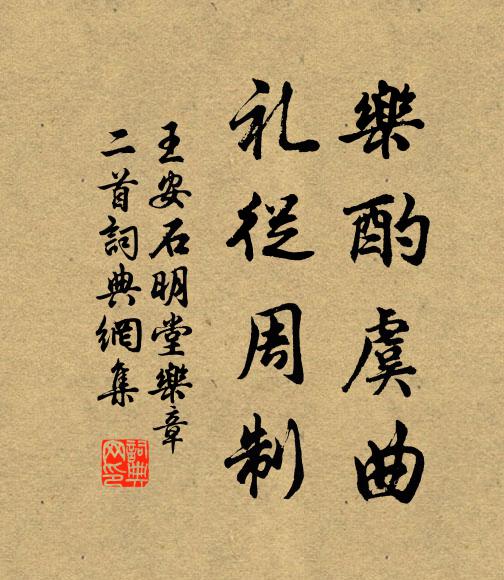 樂酌虞曲
礼從周制
王安石明堂樂章
二首詞典網集
詞典网印